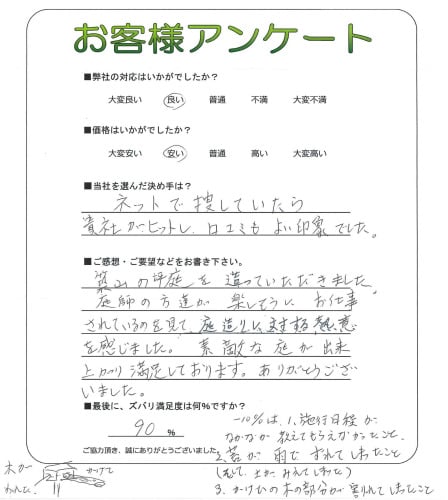 お客様アンケート
■弊社の対応はいかがでしたか?
大変良い 良い 普通 不満 大変不満
■価格はいかがでしたか?
大変安い 安い 普通 高い 大変高い
■当社を選んだ決め手は?
ネットで捜していたら
貴社がヒットし、口コミもよい印象でした。
■ご感想・ご要望などをお書き下さい。
築山の坪庭を造っていただきました
庭師の方達が楽しそうにお仕事
されているのを見て、庭造りに対する熱意
を感じました。素敵な庭が出来
上がり満足しております。ありがとうござい
いました。
■最後に、ズバリ満足度は何%ですか?
90 %
ご協力頂き、誠にありがとうございました。
-10%は、1、施行日程が、
なかなか教えてもらえなかったこと。
2、苔が雨でずれてしまったこと
(そして、土がみえてしまった)
3、かけひの木の部分が割れてしまったこと
木が
われた
かけて